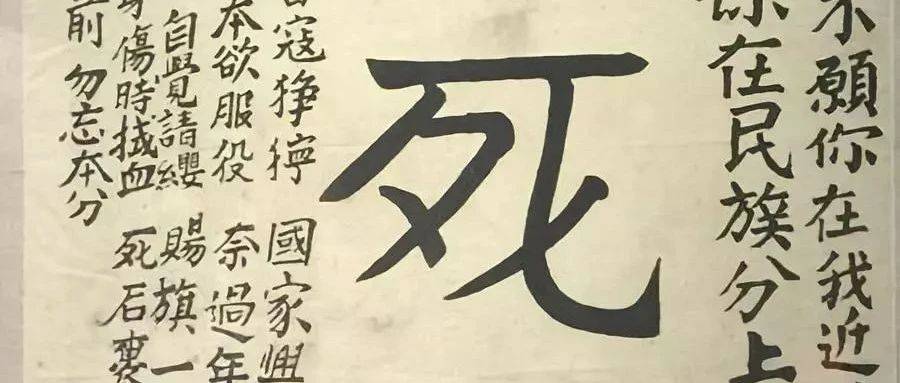 不願你在我近
你在民族分上
死
寇猙獰 國家興
本欲服役 奈過年
自覺請纓 賜旗一
身傷時拭血 死后裹
前 勿忘本分